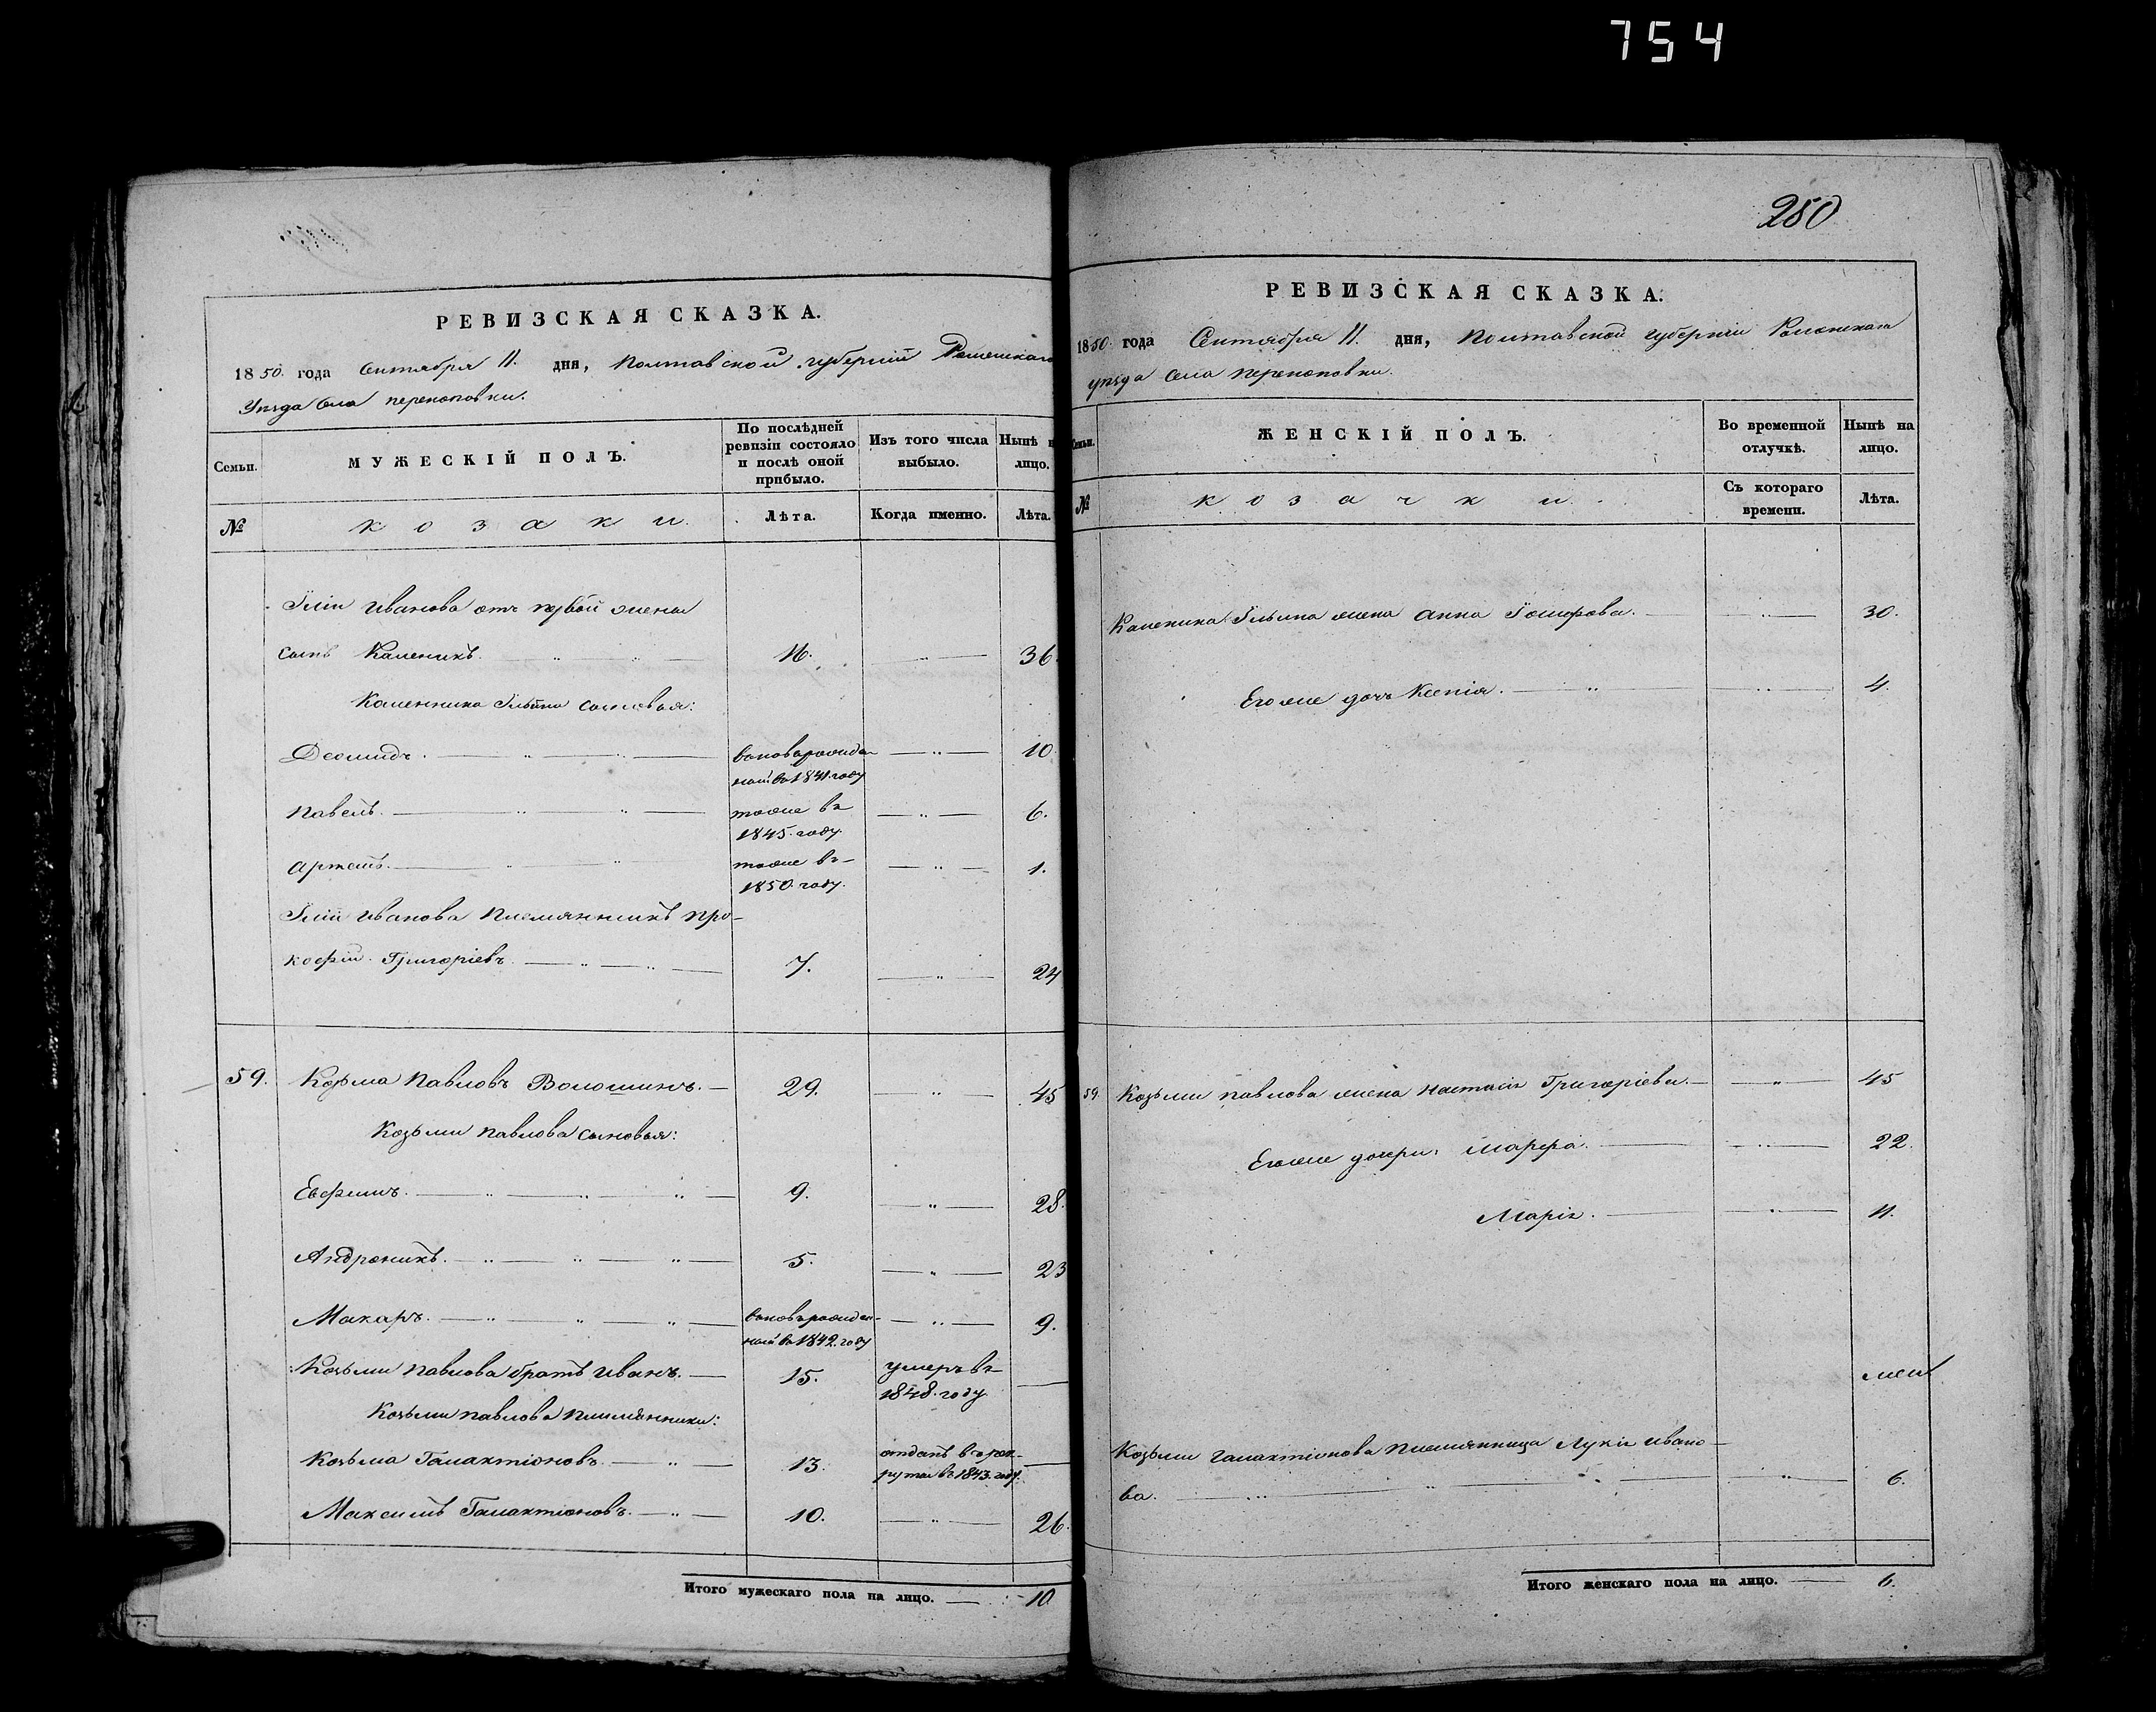 754
РЕВИЗСКАЯ СКАЗКА.
1850. года Сентября 11. дня, Полтавской губерніи Роменскаго
Уѣзда Села Перекоповки.
Семьи.
МУЖЕСКІЙ ПОЛЪ.
По послѣдней ревизіи состояло и послѣ оной прибыло.
Изъ того числа выбыло.
Нынѣ на лицо.
№
козаки.
Лѣта.
Когда именно.
Лѣта.
Іліи Иванова отъ первой жены
сынъ Каленикъ. 16. 36.
Каленика Ильина сыновья:
Деомидъ. вновьрожден-ный въ 1841. году 10.
Павелъ. тоже въ 1845. году. 6.
Артемъ. тоже въ 1850. году. 1.
Іліи Иванова племянникъ Про-
кофій Григоріевъ. 7. 24
59. Козьма Павловъ Волошинъ. 29. 45
Козьмы Павлова сыновья:
Евфимъ. 9. 28.
Андроникъ. 5. 23
Макаръ. вновьрожден-ный въ 1842. году 9.
Козьмы Павлова братъ Иванъ. 15. умеръ въ 1848. году
Козьмы Павлова племянники:
Козьма Галактіоновъ. 13. отданъ въ рек-руты въ 1843. году.
Максимъ Галактіоновъ. 10. 26.
Итого мужескаго пола на лицо. 10
280
РЕВИЗСКАЯ СКАЗКА.
1850. года Сентября 11. дня, Полтавской губерніи Роменскаго
уѣзда Села Перекоповки.
Семьи.
ЖЕНСКІЙ ПОЛЪ.
Во временной отлучкѣ.
Нынѣ на лицо.
№
козачки.
Съ котораго времени.
Лѣта.
Каленика Ильина жена Анна 30.
Егоже дочь Ксенія. 4.
59. Козьмы Павлова жена Настасія Григоріева. 45
Егоже дочери: Марфа. 22.
Марія. 11.
Козьмы Галактіонова племянница Лукія Ивано-
ва. 6.
Итого женскаго пола на лицо. 6.